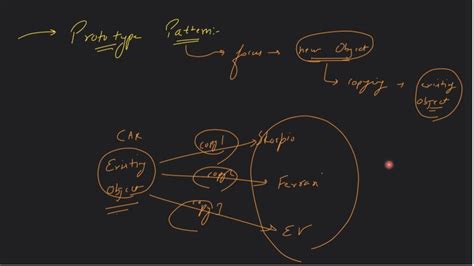 Prototype Pattern:-
focus → new Object
copying → existing Object
CAR
Existing Object
copy 1
Skorpio
copy 2
Ferrari
copy 3
EV